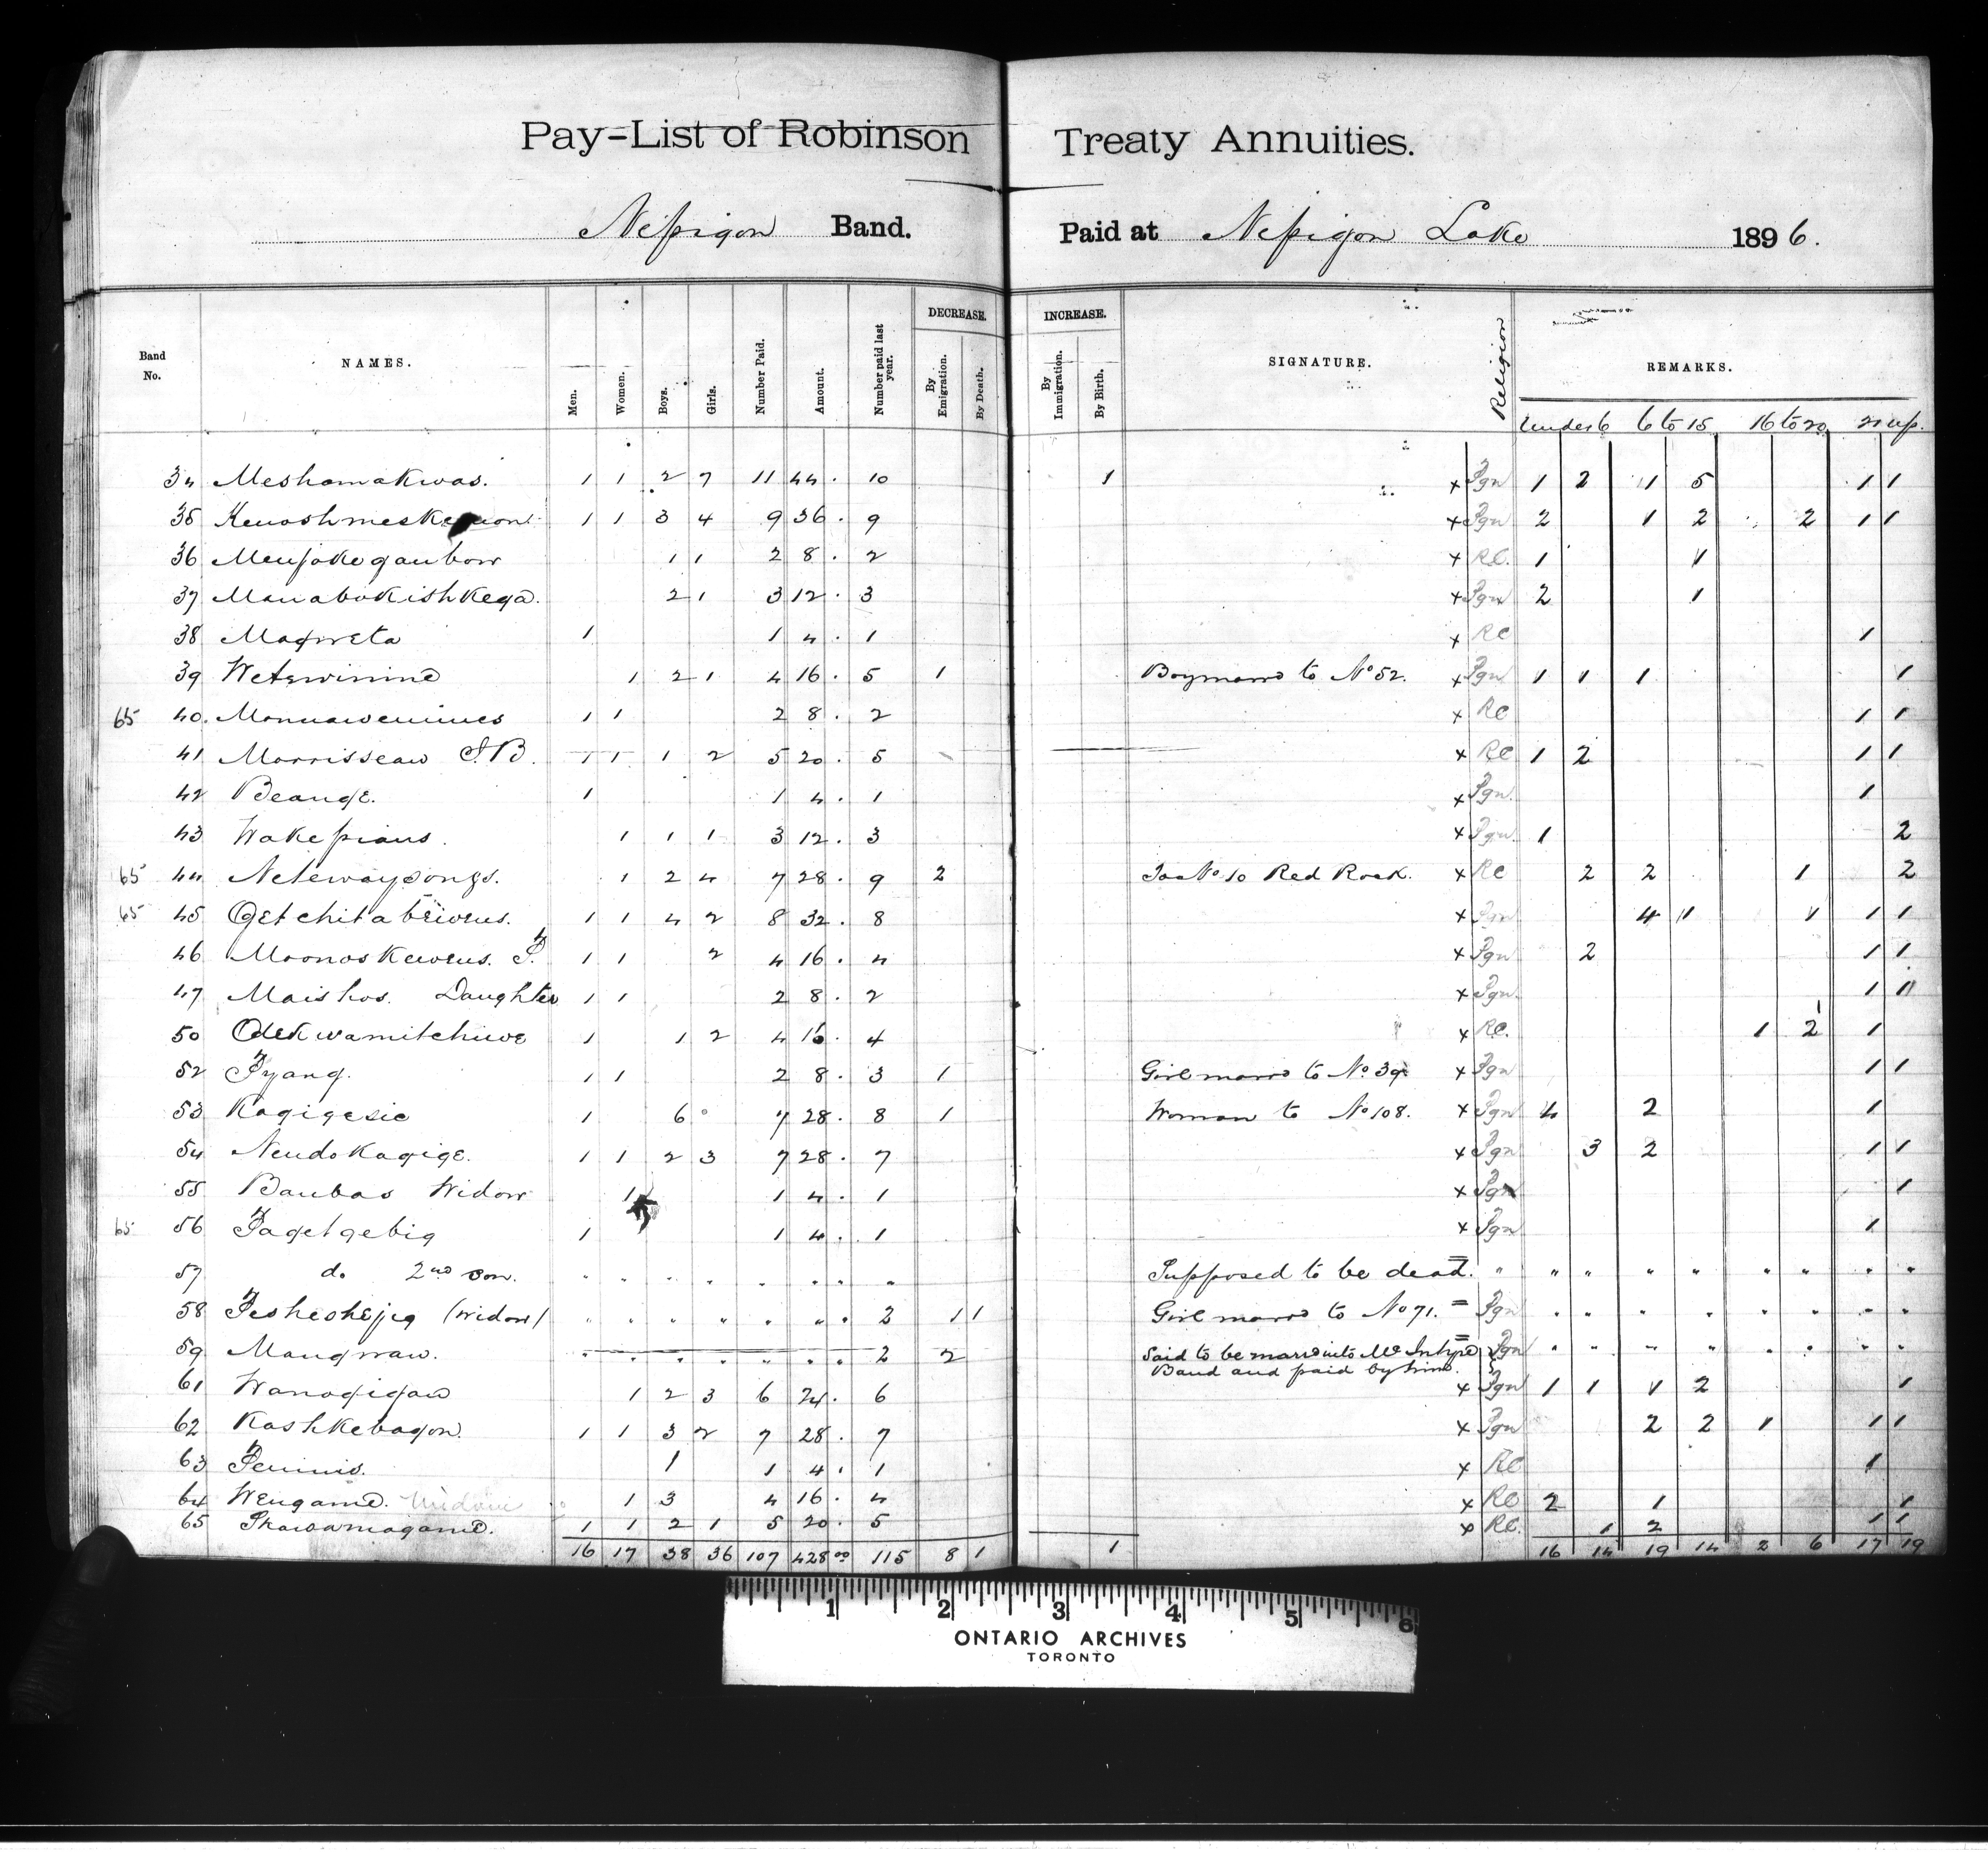 Pay-List of Robinson Treaty Annuities.
Nepigon Band. Paid at Nepigon Lake 1896.
Band No. NAMES. Men. Women. Boys. Girls. Number Paid. Amount. Number paid last year. DECREASE. By Emigration. By Death. INCREASE. By Immigration. By Birth. SIGNATURE. Religion REMARKS.
Under 6 6 to 15 16 to 20 21 up.
34 Meshamakwas. 1 1 2 7 11 44. 10 1 x Pgn 1 2 11 5 1 1
35 1 1 3 4 9 36. 9 x Pgn 2 1 2 2 1 1
36 Menjakegaubow 1 1 2 8. 2 x RC. 1 1
37 Manabokishkega. 2 1 3 12. 3 x Pgn 2 1
38 Magweta 1 1 4. 1 x RC 1
39 Wetewinind 1 2 1 4 16. 5 1 Boy marrd to No 52. x Pgn 1 1 1 1
65 40. Monnawenines 1 1 2 8. 2 x RC 1 1
41 Morrisseau J.B. 1 1 1 2 5 20. 5 x RC 1 2 1 1
42 Beauge. 1 1 4. 1 x Pgn. 1
43 Wakepians. 1 1 1 3 12. 3 x Pgn. 1 2
65 44 Netewaysongs. 1 2 4 7 28. 9 2 To No 10 Red Rock. x RC 2 2 1 2
65 45 Getchitabeiorus. 1 1 4 2 8 32. 8 x Pgn 4 11 1 1 1
46 Moonoskeworus. P. 1 1 2 4 16. 4 x Pgn 2 1 1
47 Maishos. Daughter 1 1 2 8. 2 x Pgn. 1 11
50 Odekwamitchiwe 1 1 2 4 16. 4 x RC. 1 2 1 1
52 Pyang. 1 1 2 8. 3 1 Girl marrd to No. 39. x Pgn 1 1
53 Kagigesic 1 6 ° 7 28. 8 1 Woman to No 108. x Pgn 4 2 1
54 Neudokagige. 1 1 2 3 7 28. 7 x Pgn 3 2 1 1
55 Baubas Widow 1 1 4. 1 x Pgn 1
65 56 Pagetgebig 1 1 4. 1 x Pgn 1
57 do 2nd son. " " " " " " " Supposed to be dead. = " " " " " " " " "
58 Pesheshejig (Widow) " " " " " " . 2 1 1 Girl marrd to No 71. = Pgn " " " " " " " "
59 Mangwaw. " " " " " " . 2 2 Said to be marrd into McIntyre = Pgn " " " " " " " "
Band and paid by him.
61 Wanogigaw 1 2 3 6 24. 6 x Pgn 1 1 1 2 1
62 Kashkebagon. 1 1 3 2 7 28. 7 x Pgn 2 2 1 1 1
63 Peninis. 1 1 4. 1 x RC 1
64 Wengamd. Widow 1 3 4 16. 4 x RC 2 1 1
65 Skawamagamd. 1 1 2 1 5 20. 5 x RC. 1 2 1 1
16 17 38 36 107 428.00 115 8 1 1 16 14 19 14 2 6 17 19
1 2 3 4 5 6
ONTARIO ARCHIVES
TORONTO